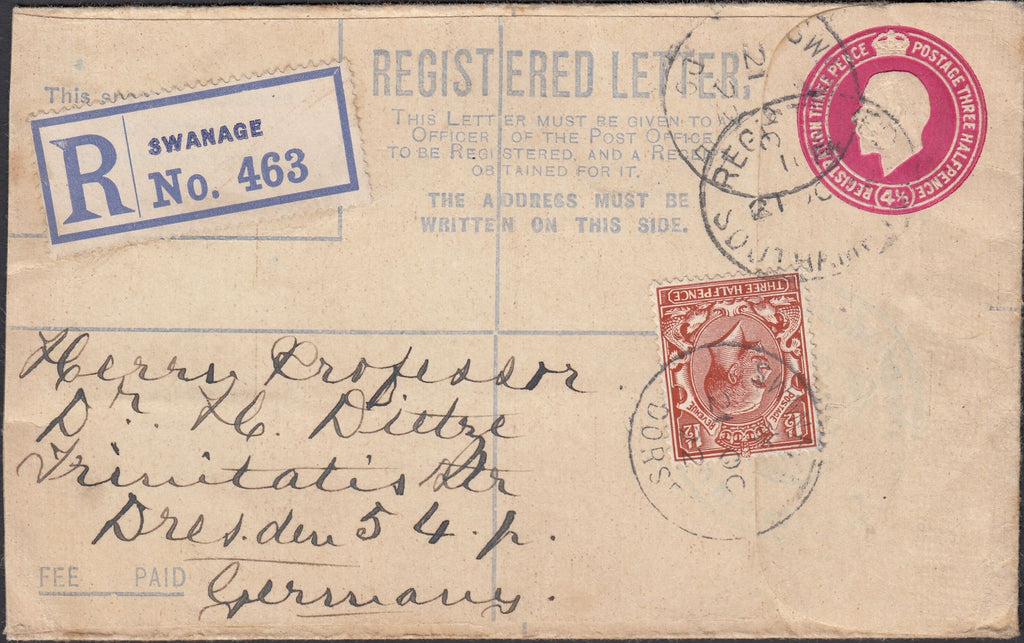 REGISTERED LETTER,
This
THIS LETTER MUST BE GIVEN TO
OFFICER OF THE POST OFFICE
TO BE REGISTERED, AND A
OBTAINED FOR IT.
THE ADDRESS MUST BE
WRITTEN ON THIS SIDE.
R
SWANAGE
No. 463
REGISTRATION THREE PENCE
POSTAGE THREE HALFPENCE
4½
REGD
THREE HALFPENCE
POSTAGE
REVENUE
1½ 1½
DORS
Herrn Professor
Dr. H. Dittze
Trinitatis Str
Dresden 54. p.
Germany.
FEE PAID